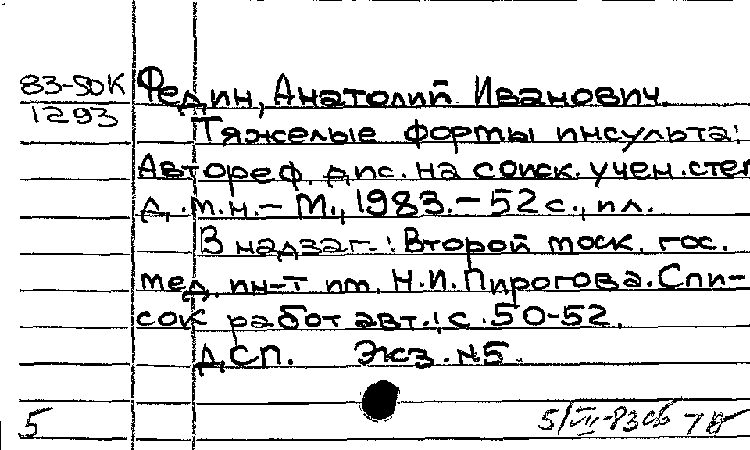 83-50К
1293
Федин, Анатолий Иванович.
Тяжелые формы инсульта:
Автореф. дис. на соиск. учен. степ
д.м.н. - М., 1983. - 52 с., ил.
В надзаг.: Второй моск. гос.
мед. ин-т им. Н.И. Пирогова. Спи-
сок работ авт.: с. 50-52.
ДСП. Экз. №5.
5